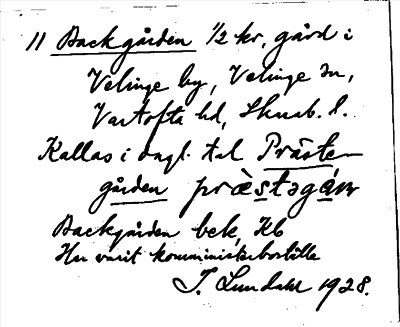 11 Backgården 1/2 kr, gård i
Velinge by, Velinge sn,
Vartofta hd, Skarab. l.
Kallas i dagl. tal Präste-
gården præ̀stəgán
Backgården bek, Kb
Har varit komministerboställe
J. Lundahl 1928.